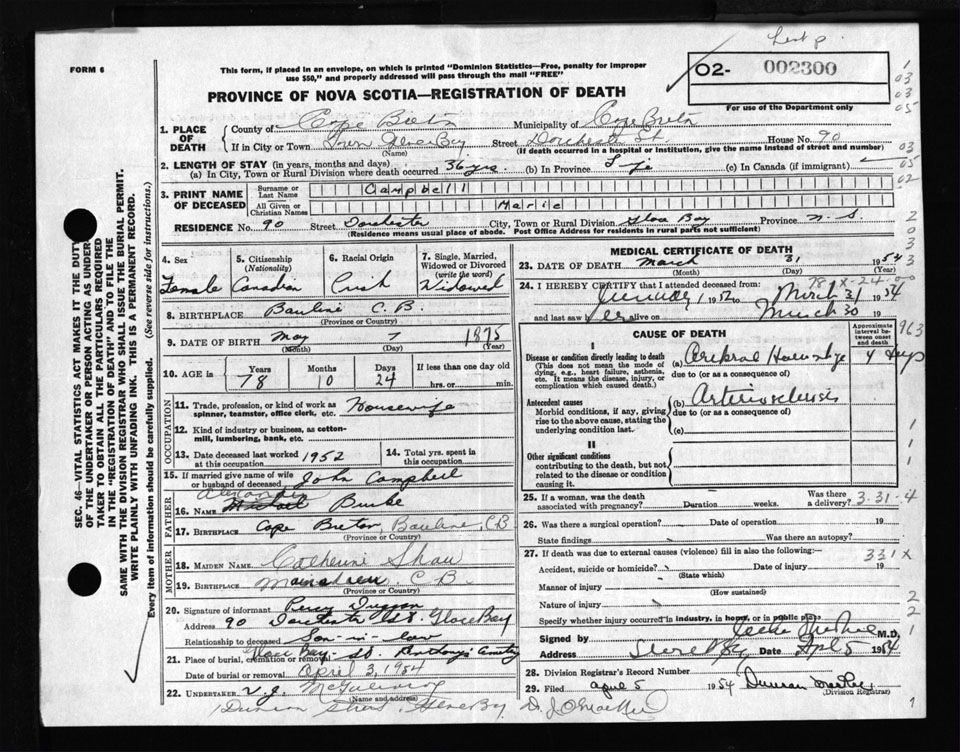 Lent p.
FORM 6
This form, if placed in an envelope, on which is printed "Dominion Statistics—Free, penalty for improper
use $50," and properly addressed will pass through the mail "FREE"
O2- 002300
For use of the Department only
PROVINCE OF NOVA SCOTIA—REGISTRATION OF DEATH
1. PLACE OF DEATH County of Cape Breton Municipality of Cape Breton
If in City or Town Town Glace Bay Street Dorchester St House No. 90
(Name) (If death occurred in a hospital or institution, give the name instead of street and number)
2. LENGTH OF STAY (in years, months and days)
(a) In City, Town or Rural Division where death occurred 36 yrs. (b) In Province Life (c) In Canada (if immigrant)
3. PRINT NAME OF DECEASED Surname or Last Name Campbell
All Given or Christian Names Marie
RESIDENCE No. 90 Street Dorchester City, Town or Rural Division Glace Bay Province N.S.
(Residence means usual place of abode. Post Office Address for residents in rural parts not sufficient)
4. Sex Female
5. Citizenship (Nationality) Canadian
6. Racial Origin Irish
7. Single, Married, Widowed or Divorced (write the word) Widowed
8. BIRTHPLACE Bauline C.B.
(Province or Country)
9. DATE OF BIRTH May 7 1875
(Month) (Day) (Year)
10. AGE in Years 78 Months 10 Days 24 If less than one day hrs. or min.
OCCUPATION
11. Trade, profession, or kind of work as spinner, teamster, office clerk, etc. Housewife
12. Kind of industry or business, as cotton-mill, lumbering, bank, etc.
13. Date deceased last worked at this occupation 1952
14. Total yrs. spent in this occupation
15. If married give name of wife or husband of deceased John Campbell
FATHER
Alexander
16. Name Michael Burke
17. Birthplace Cape Breton, Bauline, C B
(Province or Country)
MOTHER
18. MAIDEN NAME Catherine Shaw
19. BIRTHPLACE Mainadieu C B.
(Province or Country)
20. Signature of informant Percy
Address 90 Dorchester St. Glace Bay
Relationship to deceased Son-in-law
21. Place of burial, cremation or removal Glace Bay - St. Anthonys Cemetery
Date of burial or removal April 3, 1954
22. UNDERTAKER V. J. McGillivray
(Name and address)
Glace Bay
MEDICAL CERTIFICATE OF DEATH
23. DATE OF DEATH March 31 1954
(Month) (Day) (Year)
24. I HEREBY CERTIFY that I attended deceased from:
January 1952 to March 31 1954
and last saw her alive on March 30 19
CAUSE OF DEATH
Approximate interval between onset and death
I
Disease or condition directly leading to death
(This does not mean the mode of dying, e.g., heart failure, asthenia, etc. It means the disease, injury, or complication which caused death.)
(a) Cerebral Hemorrhage 4 days
due to (or as a consequence of)
Antecedent causes
Morbid conditions, if any, giving rise to the above cause, stating the underlying condition last.
(b) Arteriosclerosis
due to (or as a consequence of)
(c)
II
Other significant conditions
contributing to the death, but not related to the disease or condition causing it.
25. If a woman, was the death associated with pregnancy? Duration weeks. Was there a delivery? 3-31-4
26. Was there a surgical operation? Date of operation 19
State findings Was there an autopsy?
27. If death was due to external causes (violence) fill in also the following:— 331X
Accident, suicide or homicide? Date of injury 19
(State which)
Manner of injury
(How sustained)
Nature of injury
Specify whether injury occurred in industry, in home, or in public place
Signed by M.D.
Address Date Apl 5 1954
28. Division Registrar's Record Number
29. Filed April 5 1954 Duncan
(Division Registrar)
SEC. 46—VITAL STATISTICS ACT MAKES IT THE DUTY
OF THE UNDERTAKER OR PERSON ACTING AS UNDER-
TAKER TO OBTAIN ALL THE PARTICULARS REQUIRED
IN THE "REGISTRATION OF DEATH" AND TO FILE THE
SAME WITH THE DIVISION REGISTRAR WHO SHALL ISSUE THE BURIAL PERMIT.
WRITE PLAINLY WITH UNFADING INK. THIS IS A PERMANENT RECORD.
Every item of information should be carefully supplied. (See reverse side for instructions.)